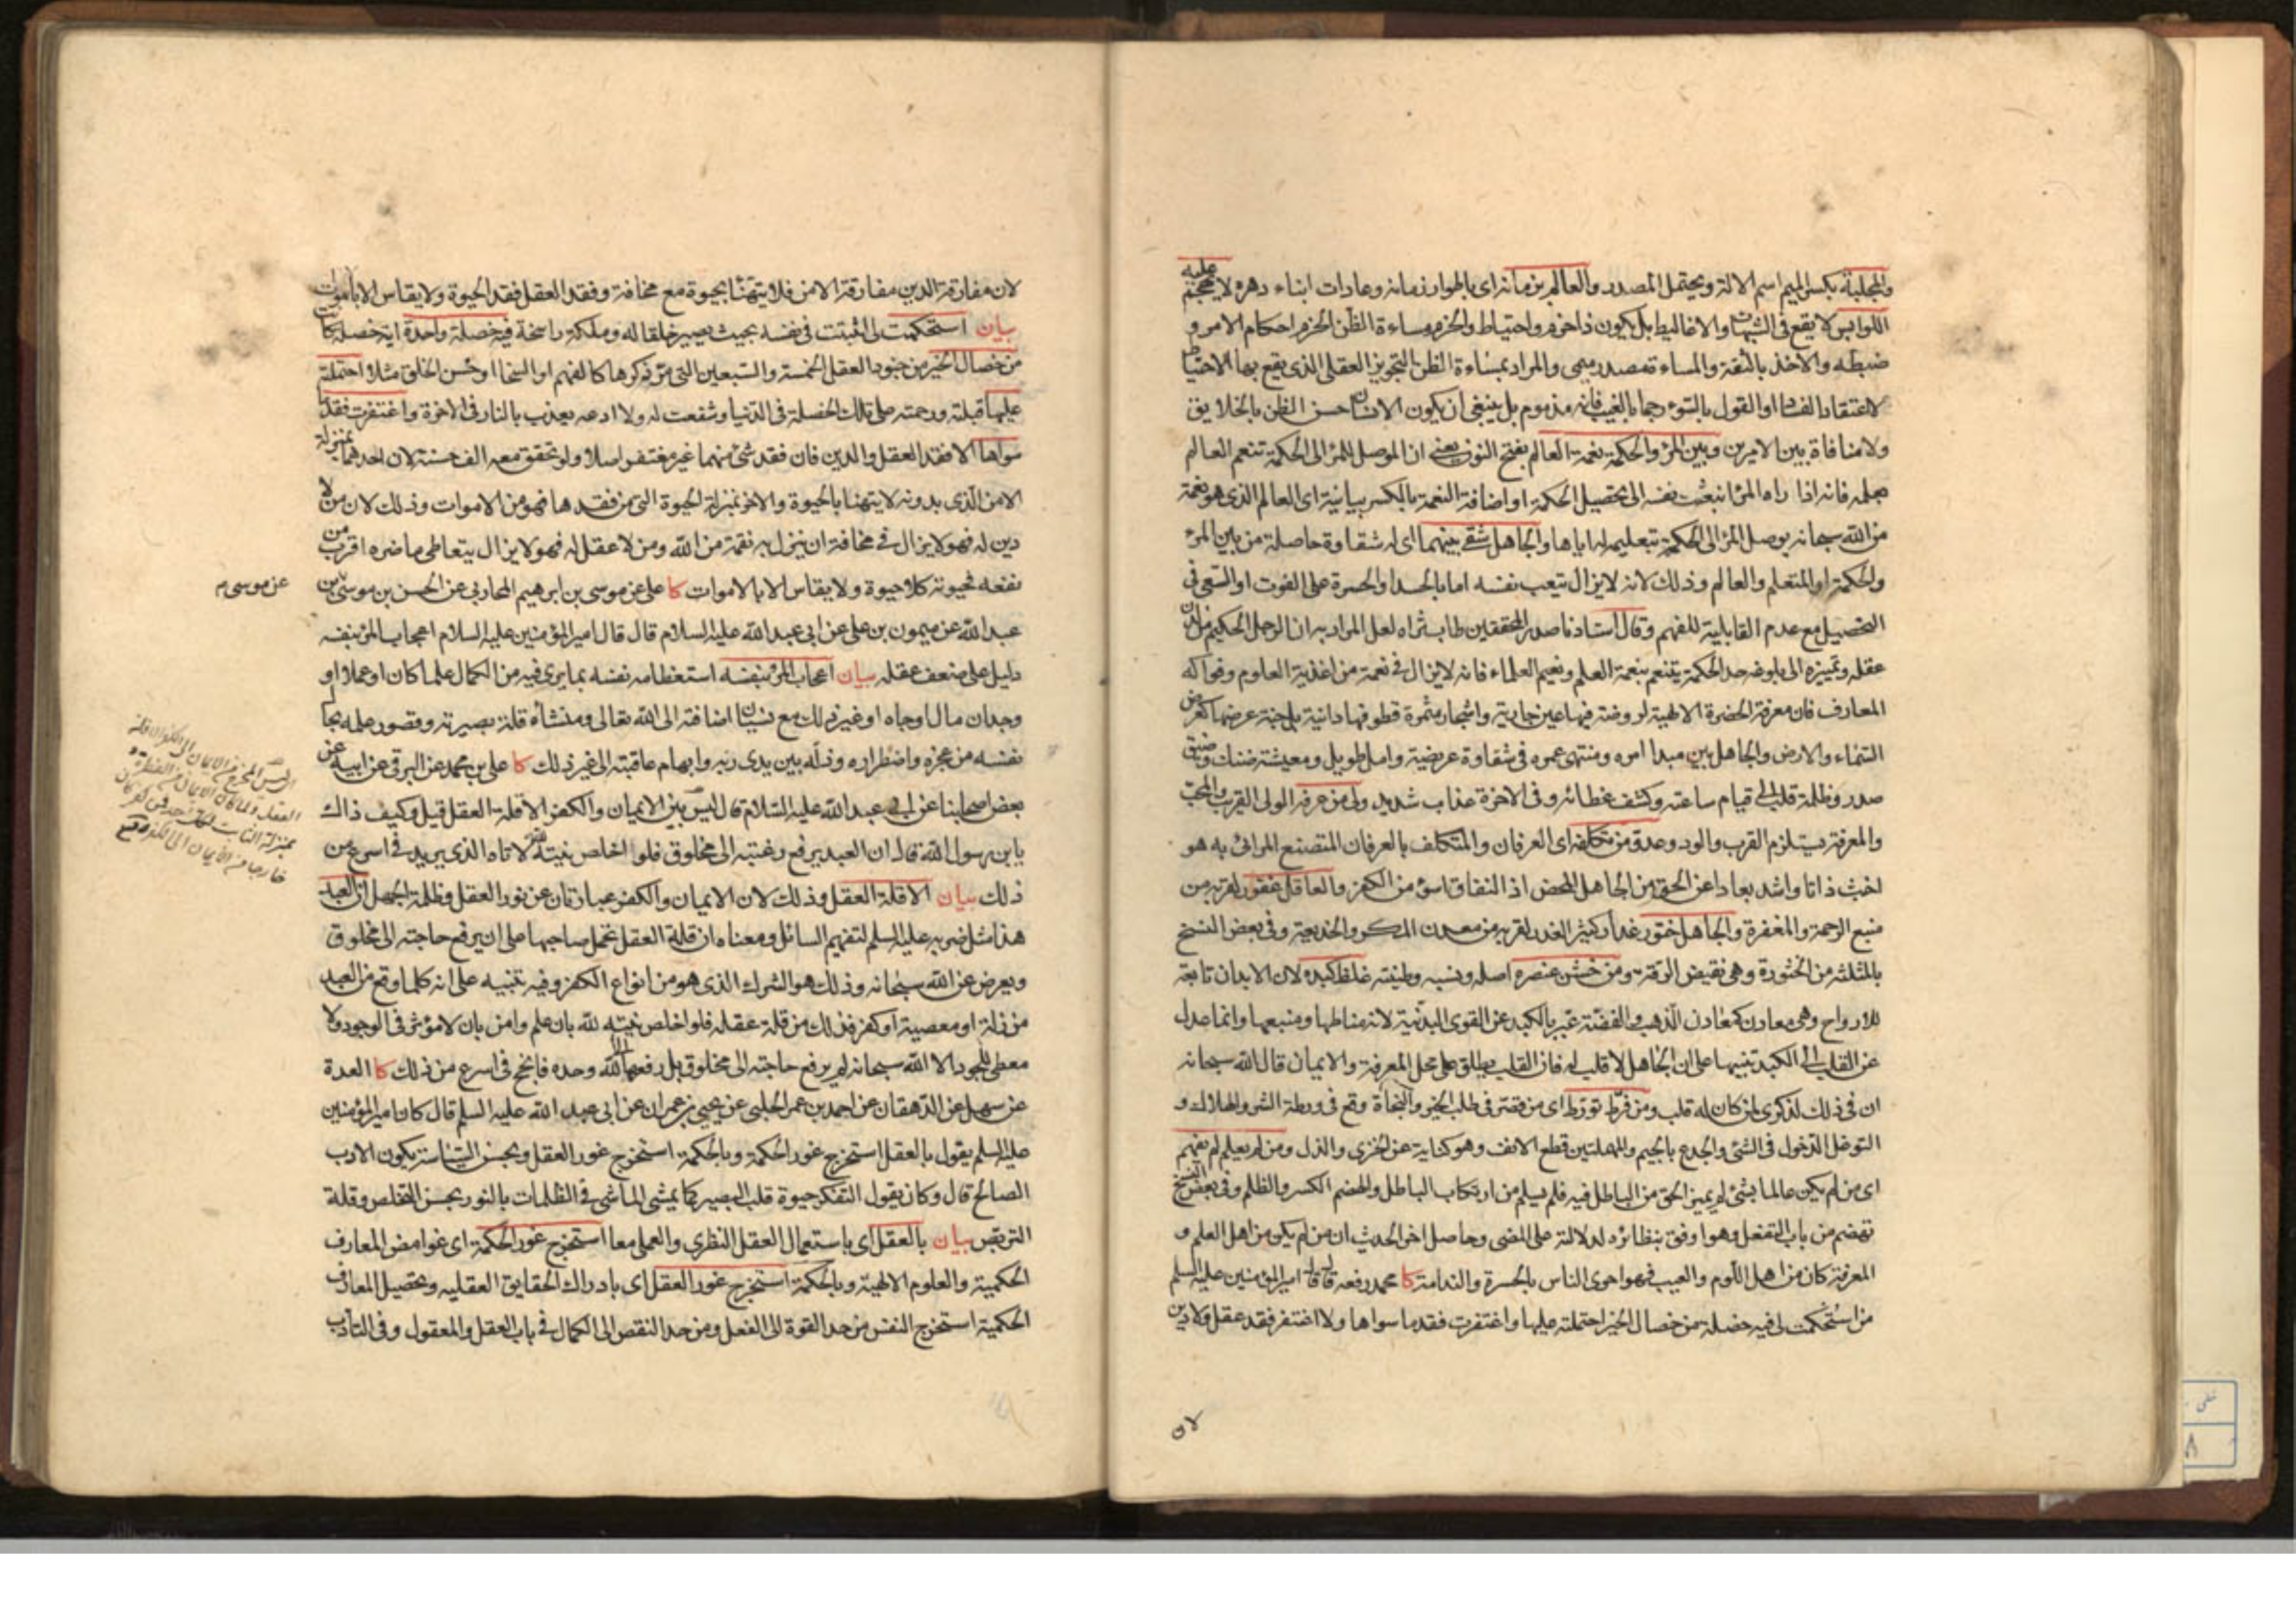 والمجلبة بكسر الميم اسم الالة ويحتمل المصدر والعالم بزمانه اى باطوار زمانه وعادات ابناء دهره لا يهجم عليه
اللوابس لا يقع فى الشبهات والاغاليط بل يكون ذا حزم واحتياط والحزم مساءة الظن الحزم احكام الامر و
ضبطه والاخذ بالثقة والمساءة مصدر ميمى والمراد بمساءة الظن التجويز العقلى الذى يقع بها الاحتياط
لا اعتقاد الفساد او القول بالسوء رجما بالغيب فانه مذموم بل ينبغى ان يكون الانسان حسن الظن بالخلايق
ولا منافاة بين الامرين وبين المرء والحكمة نعمة العالم بفتح النون يعنى ان الموصل للمرء الى الحكمة تنعم العالم
بعلمه فانه اذا راه المرء انبعثت نفسه الى تحصيل الحكمة او اضافة النعمة بالكسر بيانية اى العالم الذى هو نعمة
من الله سبحانه يوصل المرء الى الحكمة بتعليمه له اياها والجاهل شقى بينهما اى له شقاوة حاصلة من بين المرء
والحكمة او المتعلم والعالم وذلك لانه لا يزال يتعب نفسه اما بالحسد او الحسرة على الفوت او السعى فى
التحصيل مع عدم القابلية للفهم وقال استادنا صدر المحققين طاب ثراه لعل المراد به ان الرجل الحكيم من لدن
عقله وتميزه الى بلوغه حد الحكمة يتنعم بنعمة العلم ونعيم العلماء فانه لا يزال فى نعمة من اغذية العلوم وفواكه
المعارف فان معرفة الحضرة الالهية لروضة فيها عين جارية واشجار مثمرة قطوفها دانية بل جنة عرضها كعرض
السماء والارض والجاهل بين مبدا امره ومنتهى عمره فى شقاوة عريضة وامل طويل ومعيشة ضنك وضيق
صدر وظلمة قلب الى قيام ساعته وكشف غطائه وفى الاخرة عذاب شديد ولى من عرفه الولى القريب والمحب
والمعرفة يستلزم القرب والود وعدو من تكلفه اى العرفان والمتكلف بالعرفان المتصنع المرائى به هو
اخبث ذاتا واشد بعادا عن الحق من الجاهل المحض اذ النفاق اسوء من الكفر والعاقل غفور لقربه من
منبع الرحمة والمغفرة والجاهل ختور غدار كثير الغدر لقربه من معدن المكر والخديعة وفى بعض النسخ
بالمثلثه من الخثورة وهى نقيض الرقة ومن خشن عنصره اصله ونسبه وطينته غلظ كبده لان الابدان تابعة
للارواح وهى معادن كمعادن الذهب والفضة عبر بالكبد عن القوى البدنية لانه مناطها ومنبعها وانما عدل
عن القلب الى الكبد تنبيها على ان الجاهل لا قلب له فان القلب يطلق على محل المعرفة والايمان قال الله سبحانه
ان فى ذلك لذكرى لمن كان له قلب ومن فرط تورط اى من قصر فى طلب الخير والنجاة وقع فى ورطة الشر والهلاك و
التوغل الدخول فى الشئ والجدع بالجيم والمهملتين قطع الانف وهو كناية عن الخزى والذل ومن لم يعلم لم يفهم
اى من لم يكن عالما بشئ لم يميز الحق من الباطل فيه فلم يسلم من ارتكاب الباطل والهضم الكسر والظلم وفى بعض النسخ
تهضم من باب التفعل وهو اوفق بنظائره لدلالة على المضى وحاصل اخر الحديث ان من لم يكن من اهل العلم و
المعرفة كان من اهل اللوم والعيب فهو احرى الناس بالحسرة والندامة كا محمد رفعه قال قال امير المؤمنين عليه السلم
من استحكمت لى فيه خصلة من خصال الخير احتملته عليها واغتفرت فقد ما سواها ولا اغتفر فقد عقل ولا دين
لان
لان مفارقة الدين مفارقة الامن فلا يتهنأ بحيوة مع مخافة وفقد العقل فقد الحيوة ولا يقاس الا بالاموات
بيان استحكمت لى اثبتت فى نفسه بحيث يصير خلقا له وملكة راسخة فيه خصلة واحدة اية خصلة كانت
من خصال الخير من جنود العقل الخمسة والسبعين التى مر ذكرها كالفهم او السخا او حسن الخلق مثلا احتملته
عليها قبلته ورحمته على تلك الخصلة فى الدنيا وشفعت له ولا ادعه يعذب بالنار فى الاخرة واغتفرت فقد ما
سواها الا فقد العقل والدين فان فقد شئ منهما غير مغتفر اصلا ولو تحقق معه الف حسنة لان احدهما بمنزلة
الامن الذى بدونه لا يتهنا بالحيوة والاخر بمنزلة الحيوة التى من فقدها فهو من الاموات وذلك لان من لا
دين له فهو لا يزال فى مخافة ان ينزل به نقمة من الله ومن لا عقل له فهو لا يزال يتعاطى ما ضره اقرب من
نفعه فحيوته كلا حيوة ولا يقاس الا بالاموات كا على عن موسى بن ابرهيم المحاربى عن الحسن بن موسى بن
عن موسى م
عبد الله عن ميمون بن على عن ابى عبد الله عليه السلام قال قال امير المؤمنين عليه السلام اعجاب المرء بنفسه
دليل على ضعف عقله بيان اعجاب المرء بنفسه استعظامه نفسه بما يرى فيه من الكمال علما كان او عملا او
وجدان مال او جاه او غير ذلك مع نسيان اضافته الى الله تعالى ومنشأه قلة بصيرته وقصور علمه بحال
نفسه من عجزه واضطراره وذله بين يدى ربه وابهام عاقبته الى غير ذلك كا على بن محمد عن البرقى عن ابيه عن
بعض اصحابنا عن ابى عبد الله عليه السلام قال ليس بين الايمان والكفر الا قلة العقل قيل وكيف ذاك
يا بن رسول الله قال ان العبد يرفع رغبته الى مخلوق فلو اخلص نيته لله لاتاه الذى يريد فى اسرع من
ذلك بيان الا قلة العقل وذلك لان الايمان والكفر عبارتان عن نور العقل وظلمة الجهل ان العبد
هذا مثل ضربه عليه السلم لتفهيم السائل ومعناه ان قلة العقل تحمل صاحبها على ان يرفع حاجته الى مخلوق
ويعرض عن الله سبحانه وذلك هو الشرك الذى هو من انواع الكفر وفيه تنبيه على انه كلما وقع من العبد
من زلة او معصية او كفر فذلك من قلة عقله فلو اخلص نيته لله بان علم وامن بان لا مؤثر فى الوجود ولا
معطى للجود الا الله سبحانه لم يرفع حاجته الى مخلوق بل رفعها الى الله وحده فانجح فى اسرع من ذلك كا العدة
عن سهل عن الدهقان عن احمد بن عمر الحلبى عن يحيى بن عمران عن ابى عبد الله عليه السلم قال كان امير المؤمنين
عليه السلم يقول بالعقل استخرج غور الحكمة وبالحكمة استخرج غور العقل وبحسن السياسة يكون الادب
الصالح قال وكان يقول التفكر حيوة قلب البصير كما يمشى الماشى فى الظلمات بالنور بحسن التخلص وقلة
التربص بيان بالعقل اى باستعمال العقل النظرى والعملى معا استخرج غور الحكمة اى غوامض المعارف
الحكمية والعلوم الالهية وبالحكمة استخرج غور العقل اى بادراك الحقايق العقليه وتحصيل المعارف
الحكمية استخرج النفس من حد القوة الى الفعل ومن حد النقص الى الكمال فى باب العقل والمعقول وفى التأدب